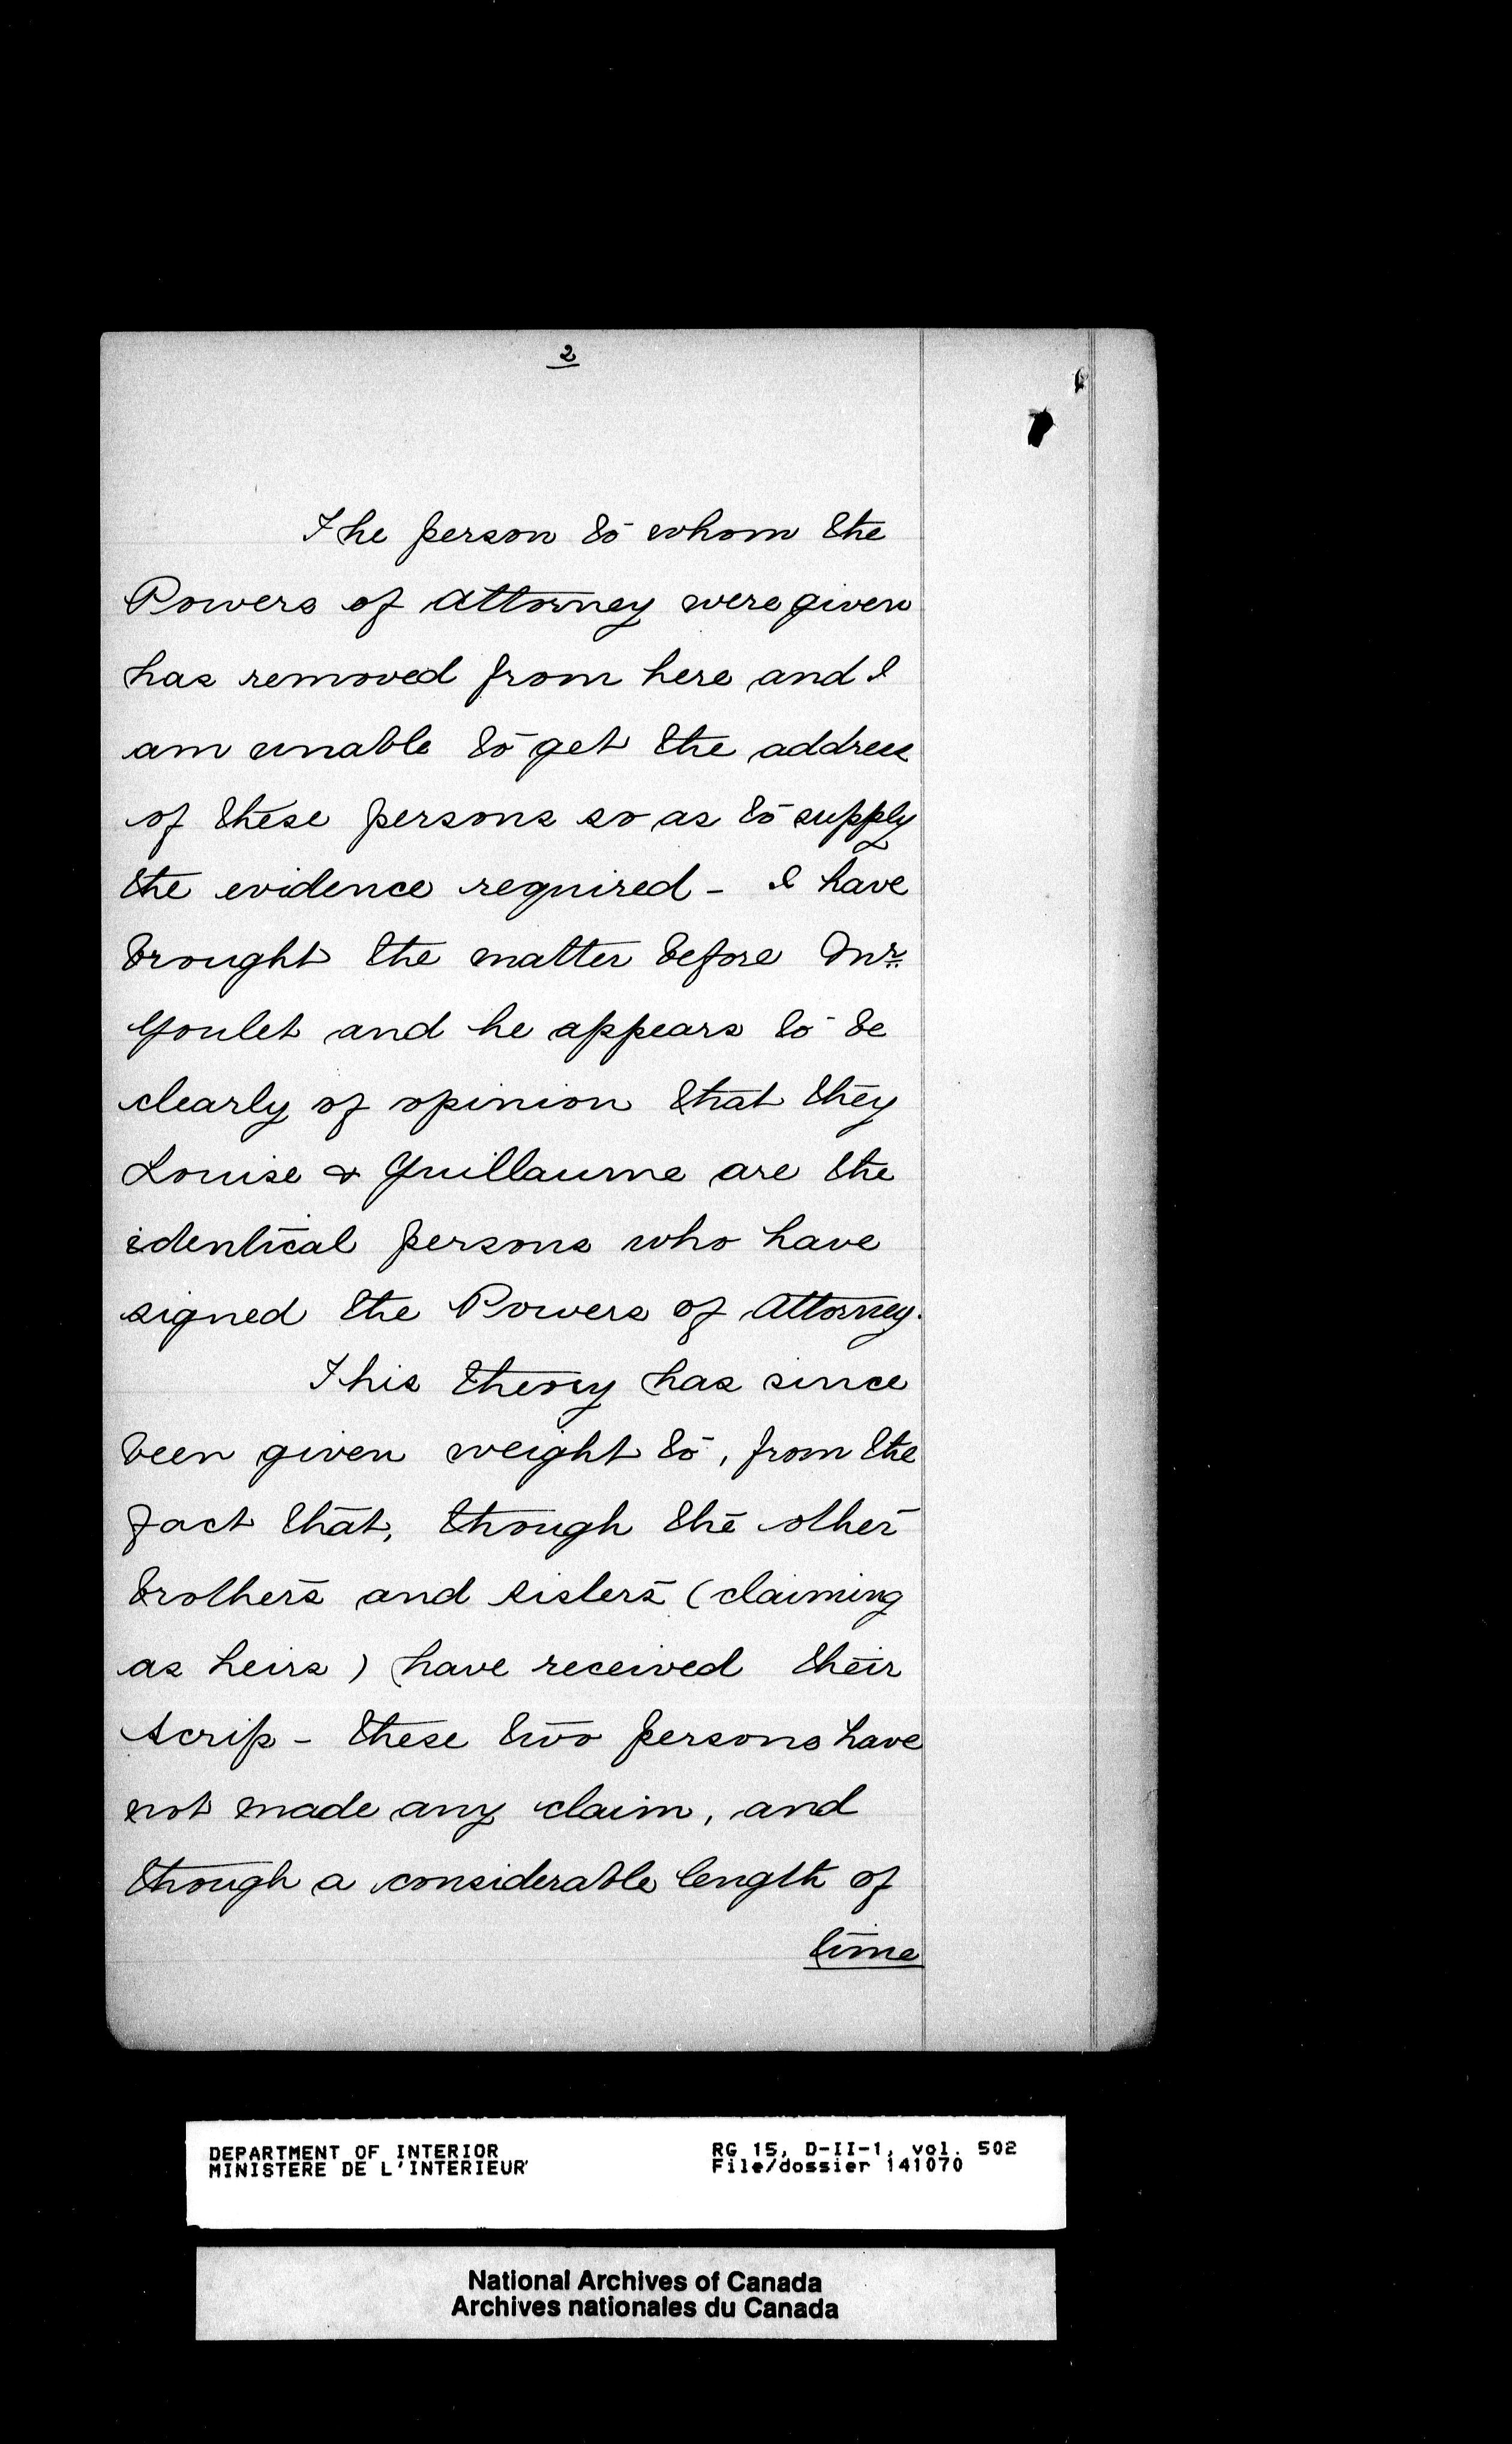 2
The person to whom the
Powers of Attorney were given
has removed from here and I
am unable to get the address
of these persons so as to supply
the evidence required - I have
brought the matter before Mr.
Goulet and he appears to be
clearly of opinion that they
Louise & Guillaume are the
identical persons who have
signed the Powers of Attorney.
This theory has since
been given weight to, from the
fact that, though the other
brothers and sisters (claiming
as heirs) have received their
scrip - these two persons have
not made any claim, and
though a considerable length of
time
DEPARTMENT OF INTERIOR RG 15, D-II-1, vol. 502
MINISTERE DE L'INTERIEUR File/dossier 141070
National Archives of Canada
Archives nationales du Canada